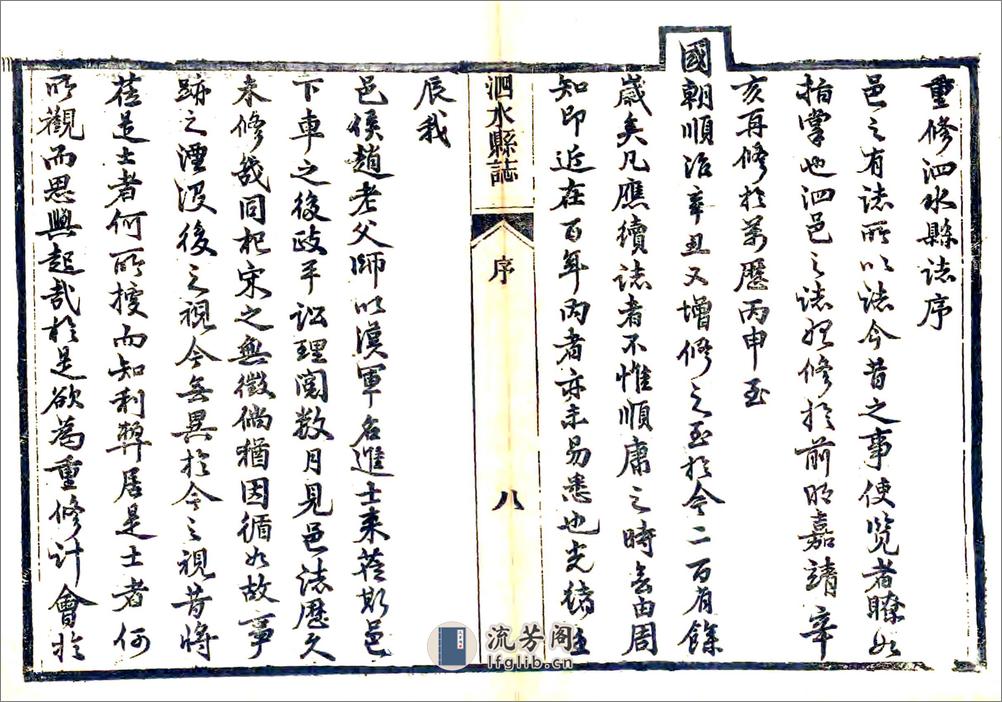 重修泗水縣誌序
邑之有誌所以誌今昔之事使览者瞭如
指掌也泗邑之誌始修於前明嘉靖辛
亥再修於萬歷丙申至
國朝順治辛丑又增修之至於今二百有餘
歲矣凡應續誌者不惟順康之時無由周
知即近在百年內者亦未易悉也光緒壬
泗水縣誌
序
八
辰我
邑侯趙老父師以漢軍名進士来蒞斯邑
下車之後政平訟理閱数月見邑誌歷久
未修幾同杞宋之無徵倘猶因循如故事
跡之湮沒後之視今無異於今之視昔將
蒞是土者何所據而知利弊居是土者何
所觀而思興起哉於是欲為重修計會於
流芳阁
lfglib.cn